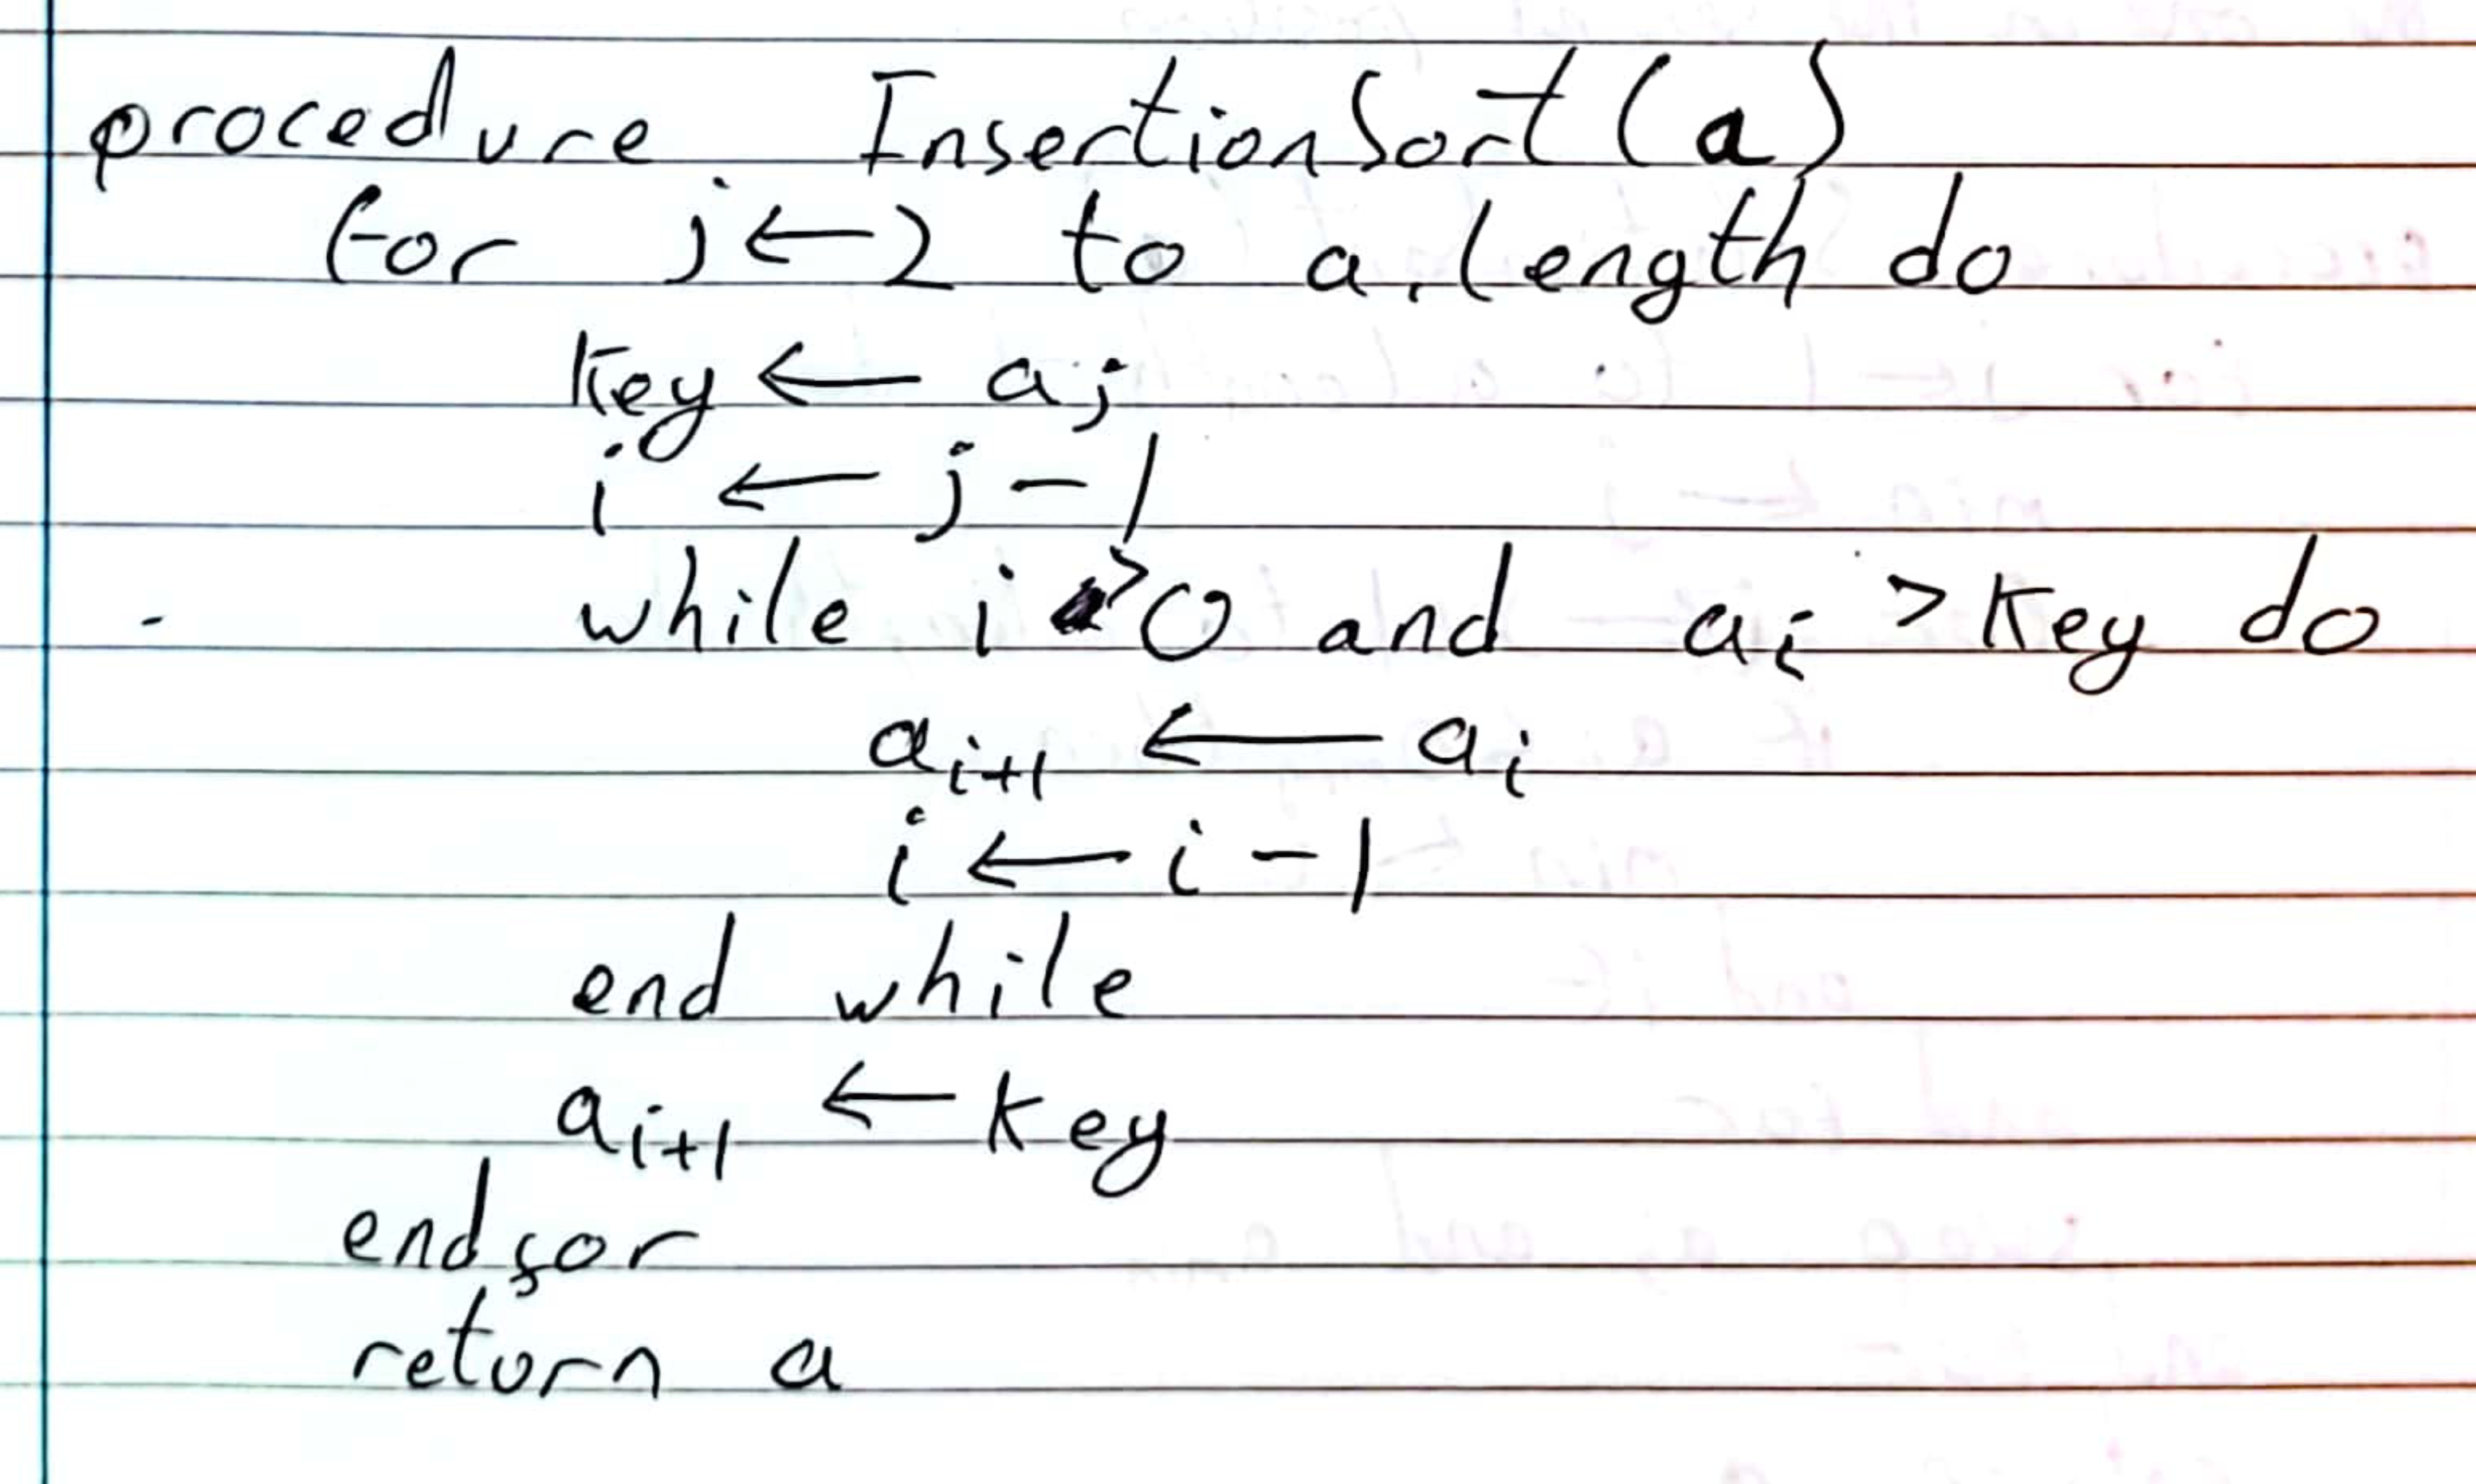 procedure InsertionSort(a)
for j ← 2 to a.length do
key ← aⱼ
i ← j - 1
while i > 0 and aᵢ > key do
aᵢ₊₁ ← aᵢ
i ← i - 1
end while
aᵢ₊₁ ← key
end for
return a